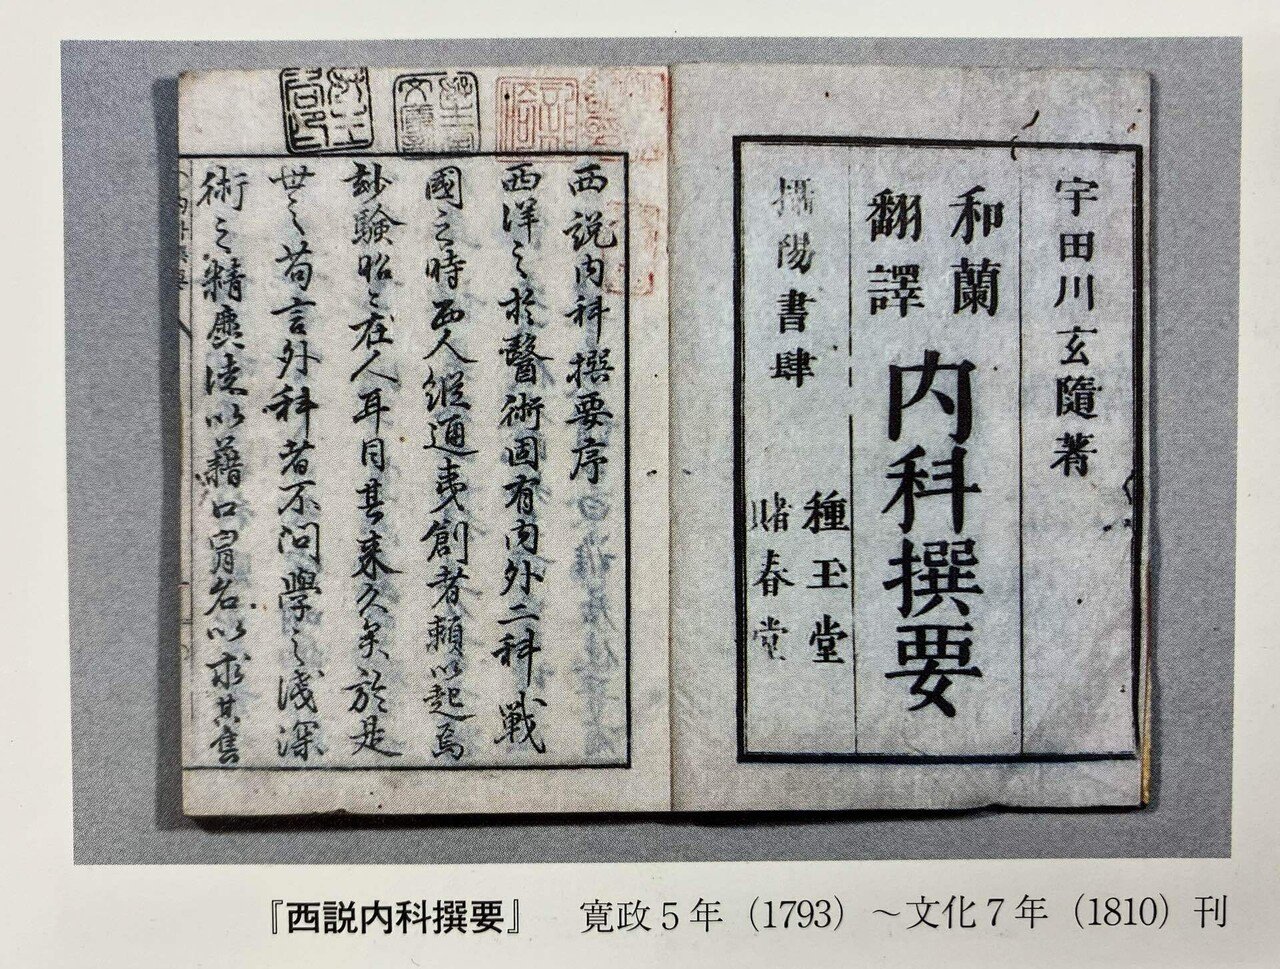 宇田川玄隨著
和蘭
翻譯
内科撰要
攝陽書肆
種玉堂
賭春堂
西説内科撰要序
西洋之於醫術固有内外二科戦
國之時西人縱通夷創者頼以起焉
玅験昭〻在人耳目其来久矣於是
世之苟言外科者不問學之浅深
術之精麁陡以藉口冐名以求其售
『西説内科撰要』 寛政5年(1793)~文化7年(1810)刊